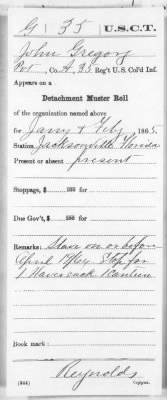 G | 35 | U.S.C.T.
John Gregory
Pvt, Co. A, 35 Reg't U. S. Col'd Inf.
Appears on a
Detachment Muster Roll
of the organization named above
for Jany & Feby, 1865.
Station Jacksonville Florida
Present or absent present
Stoppage, $ 100 for
Due Gov't, $ 100 for
Remarks: Slave on or before
April 19/61 Stop for
1 Haversack 1 Canteen
Book mark:
Reynolds
(844) Copyist.